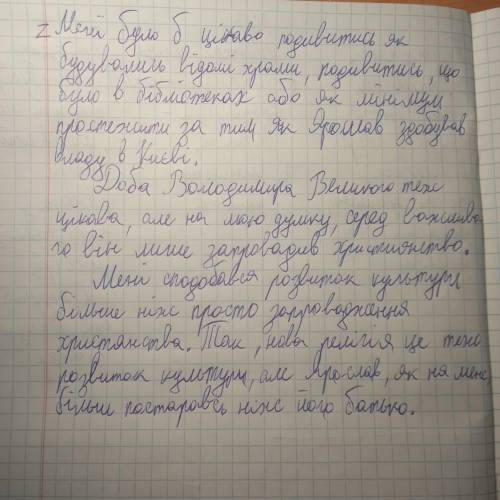 Z Мені було б цікаво подивитись як
будувались відомі храми, подивитись, що
було в бібліотеках або як мінімум
простежити за тим як Ярослав здобував
владу в Києві.
Доба Володимира Великого теж
цікава, але на мою думку, серед важливо
го він лише запровадив християнство.
Мені сподобався розвиток культури
більше ніж просто запровадження
християнства. Так, нова релігія це теж
розвиток культури, але Ярослав, як на мене,
більш постарався ніж його батько.